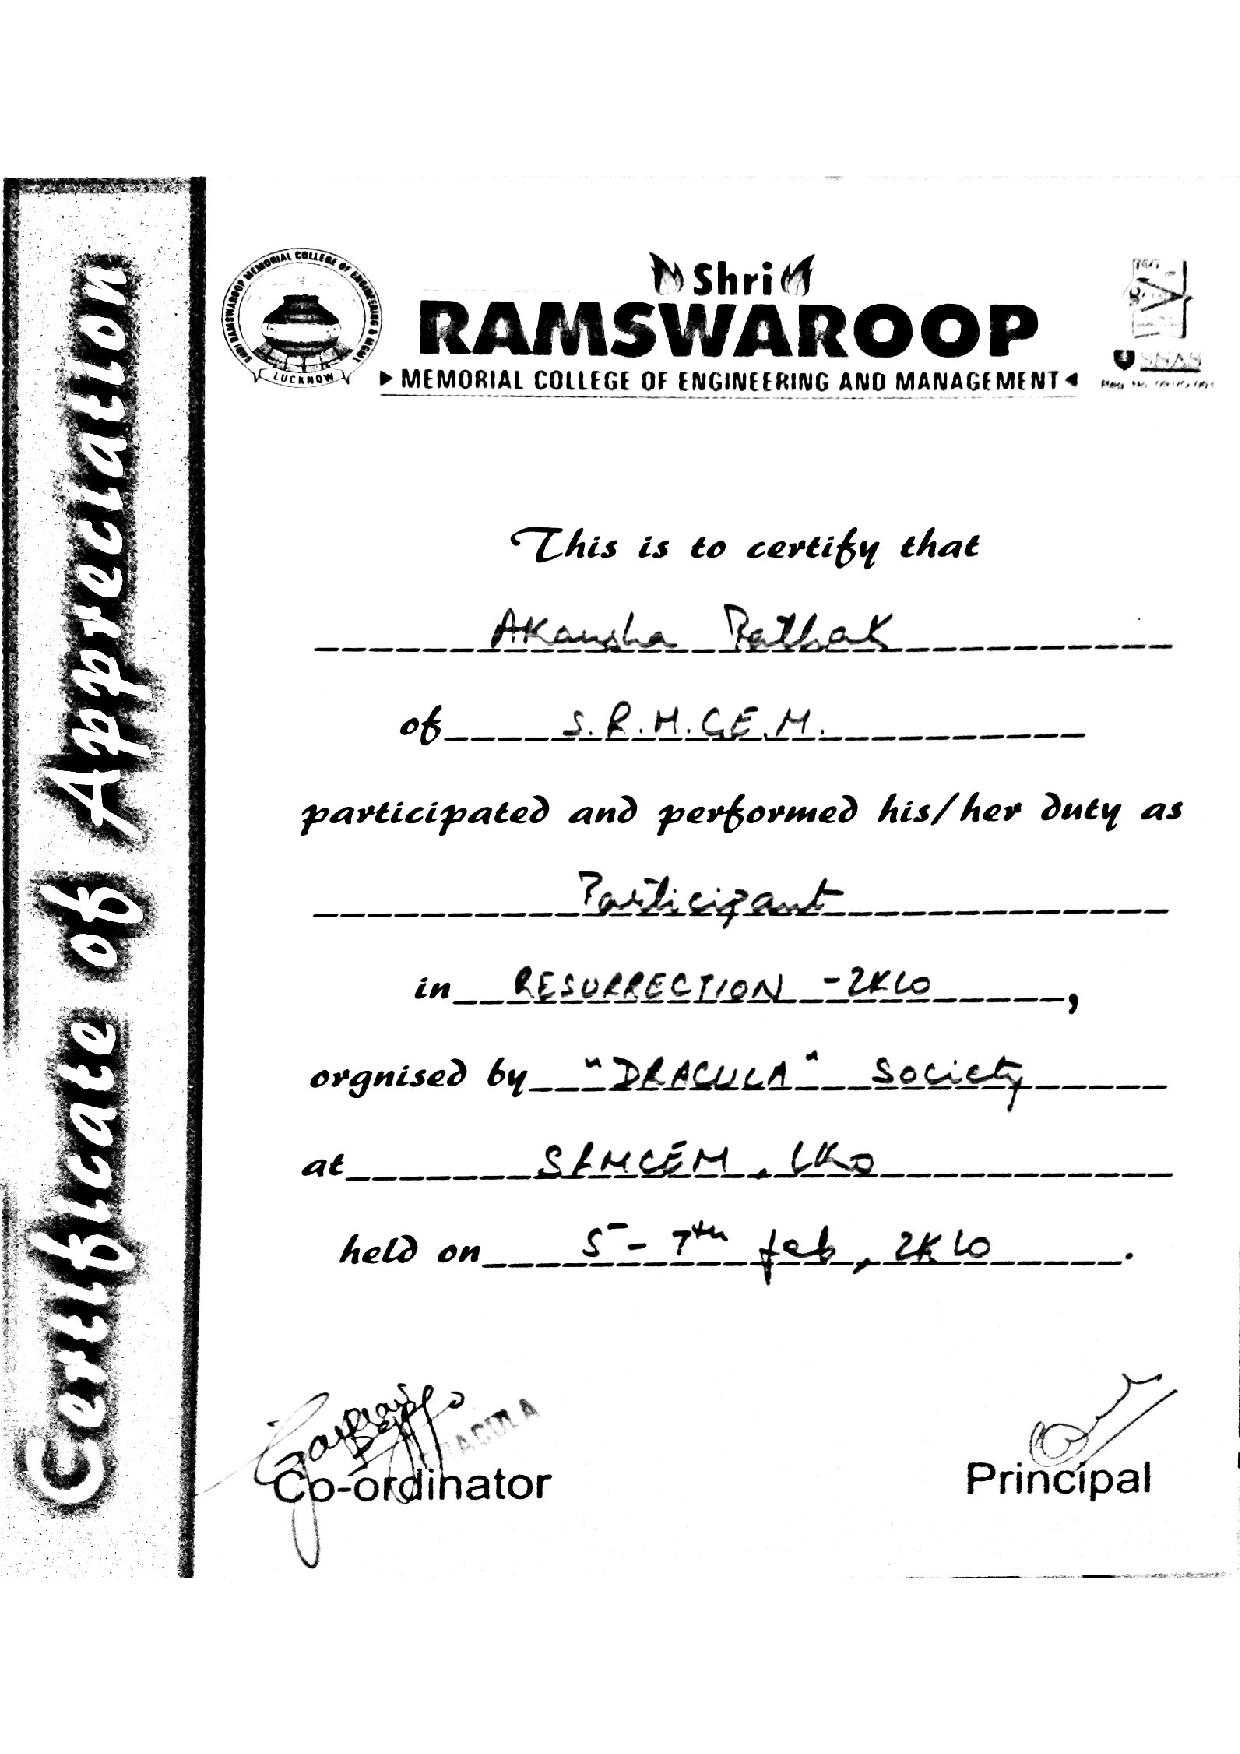 Certificate of Appreciation
SHRI RAMSWAROOP MEMORIAL COLLEGE OF ENGINEERING & MGMT.
LUCKNOW
Shri
RAMSWAROOP
MEMORIAL COLLEGE OF ENGINEERING AND MANAGEMENT
This is to certify that
Akansha Pathak
of S.R.M.C.E.M.
participated and performed his/her duty as
Participant
in RESURRECTION - 2K10,
orgnised by "DRACULA" Society
at SRMCEM, LKO
held on 5 - 7th feb, 2K10.
Co-ordinator
Principal